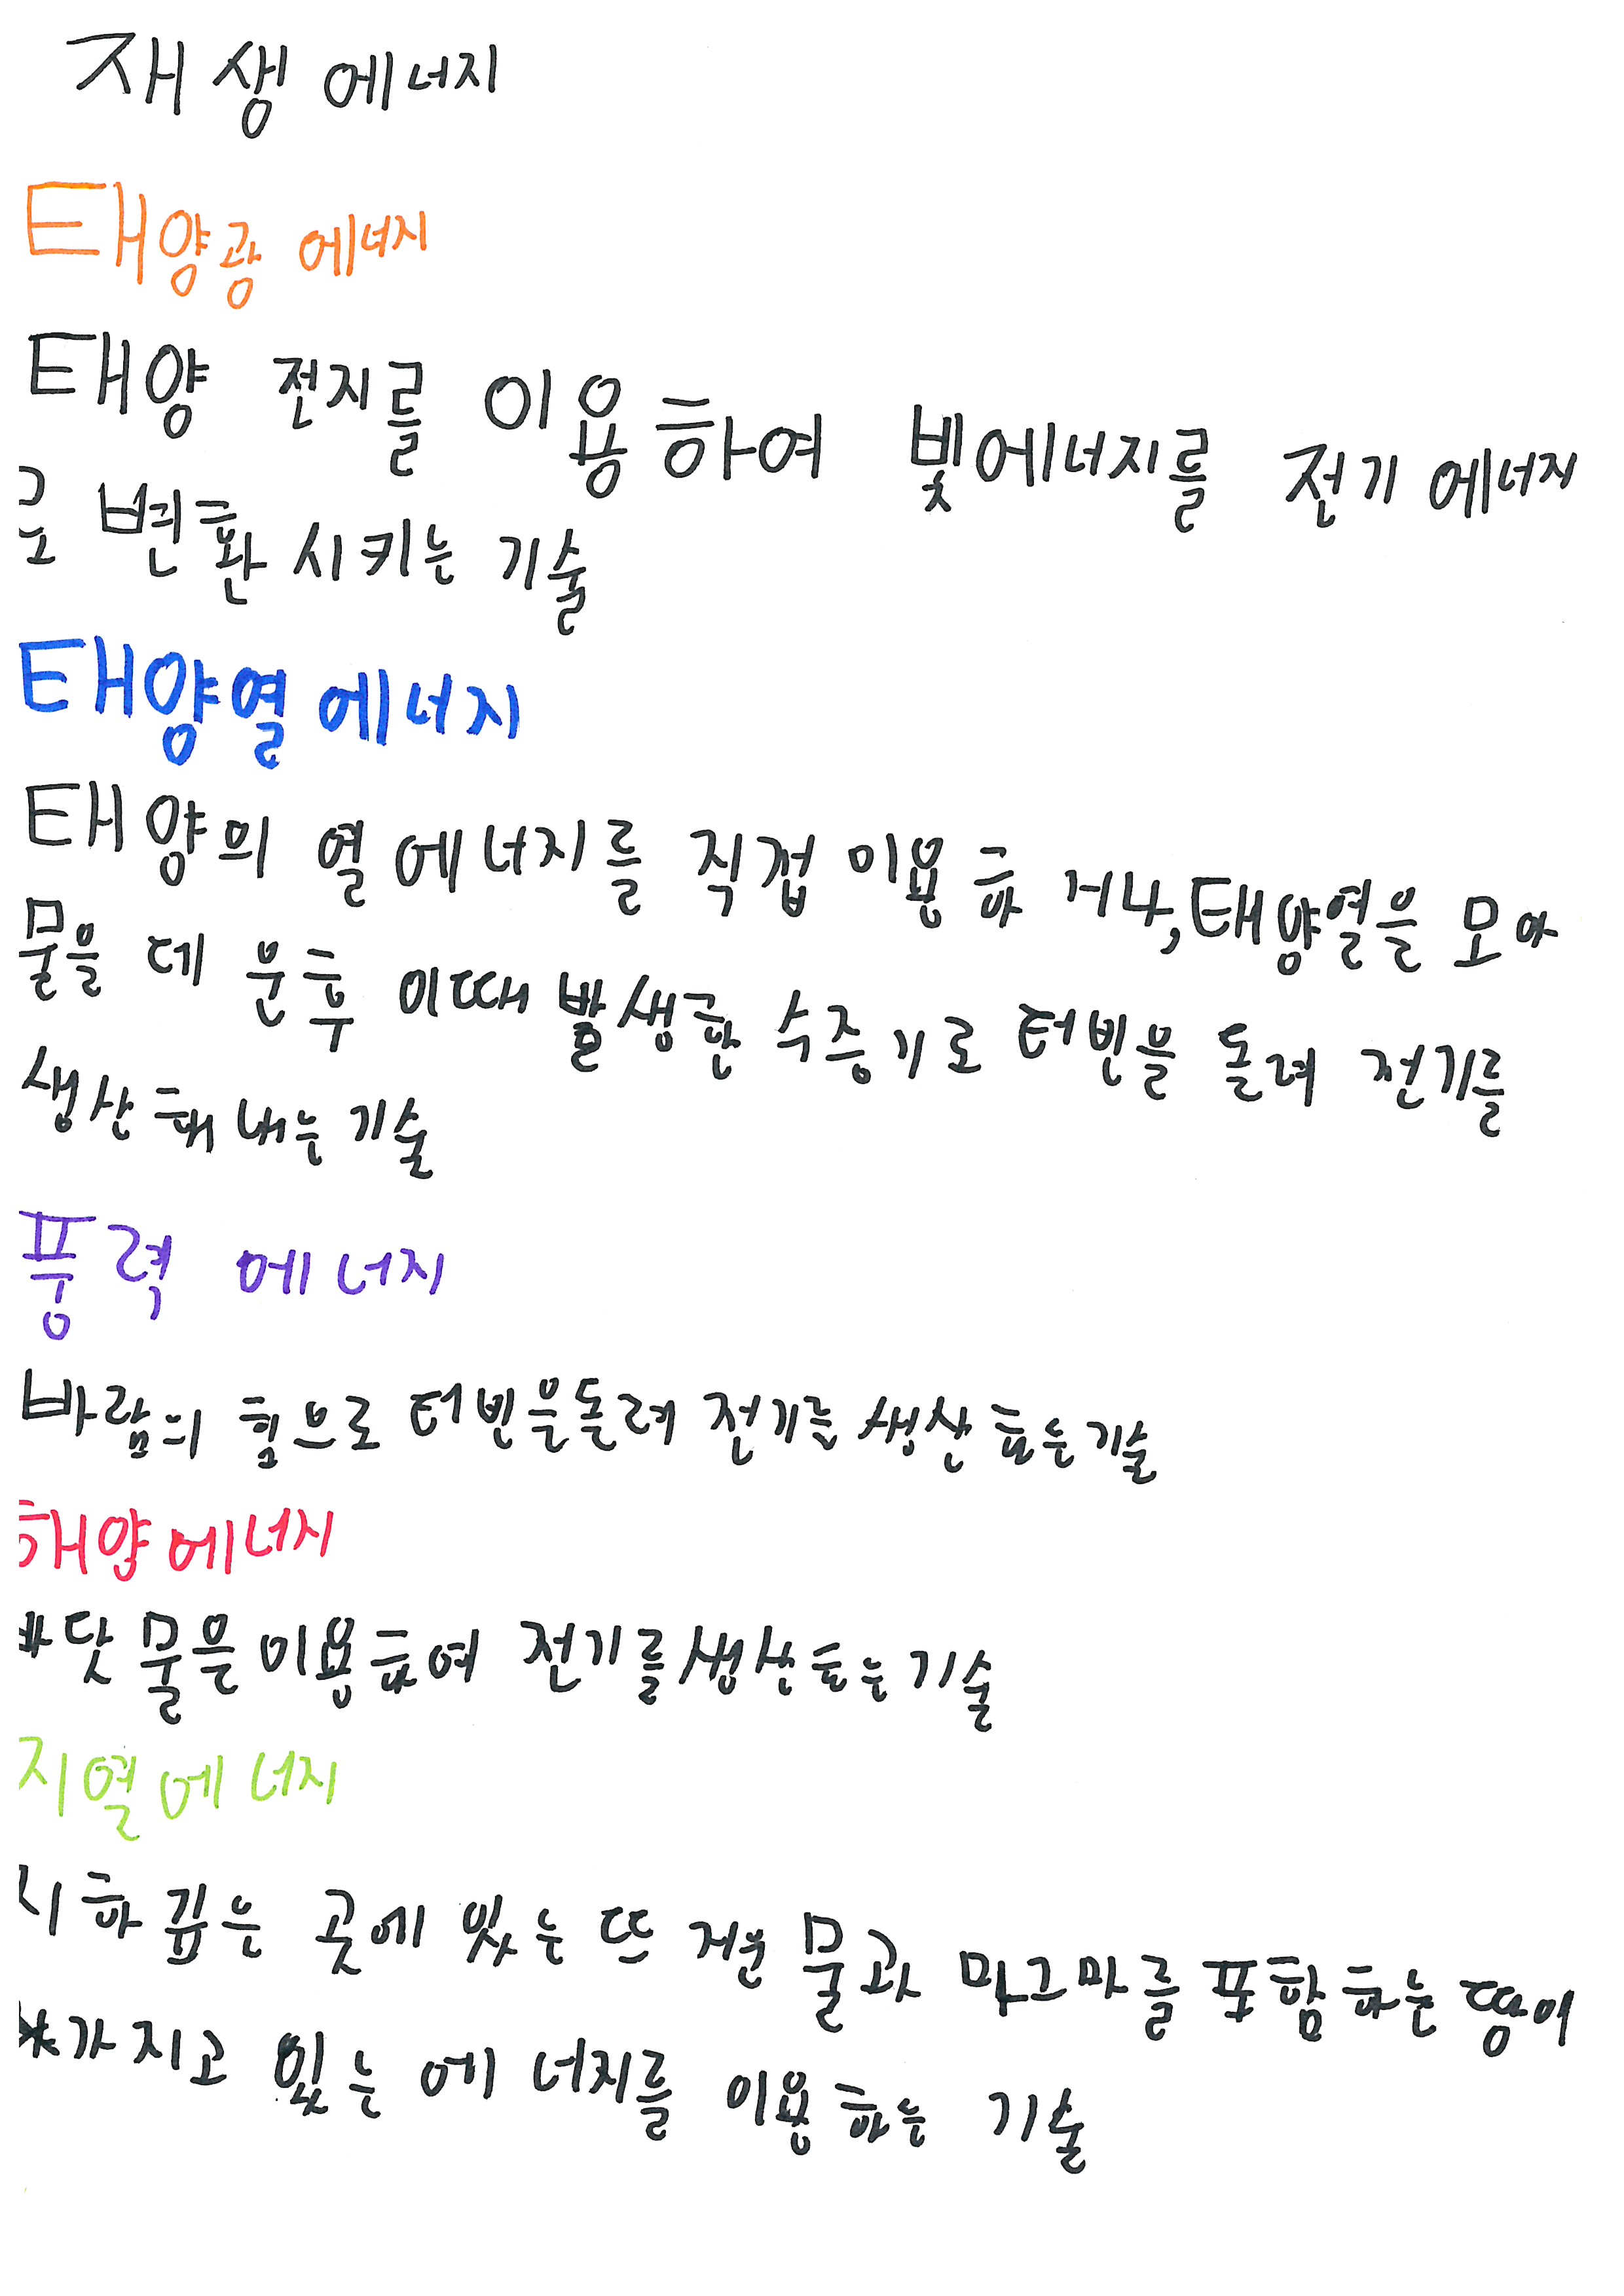 재생에너지
태양광 에너지
태양 전지를 이용하여 빛에너지를 전기 에너지
로 변환 시키는 기술
태양열에너지
태양의 열에너지를 직접 이용하거나, 태양열을 모아
물을 데 운후 이때 발생한 수증기로 터빈을 돌려 전기를
생산해내는 기술
풍력 에너지
바람의 힘으로 터빈을돌려 전기를 생산하는기술
해양에너지
바닷물을 이용하여 전기를생산하는기술
지열에너지
지하 깊은 곳에 있는 뜨거운 물과 마그마를 포함하는 땅이
가지고 있는 에너지를 이용하는 기술